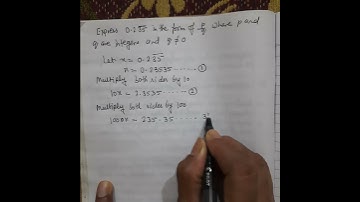 Express 0.235 in the form of p/q where p and
q are integers and q ≠ 0
Let x = 0.235
x = 0.23535 ........ ①
Multiply both sides by 10
10x = 2.3535 ........ ②
Multiply both sides by 100
1000x = 235.35 ........